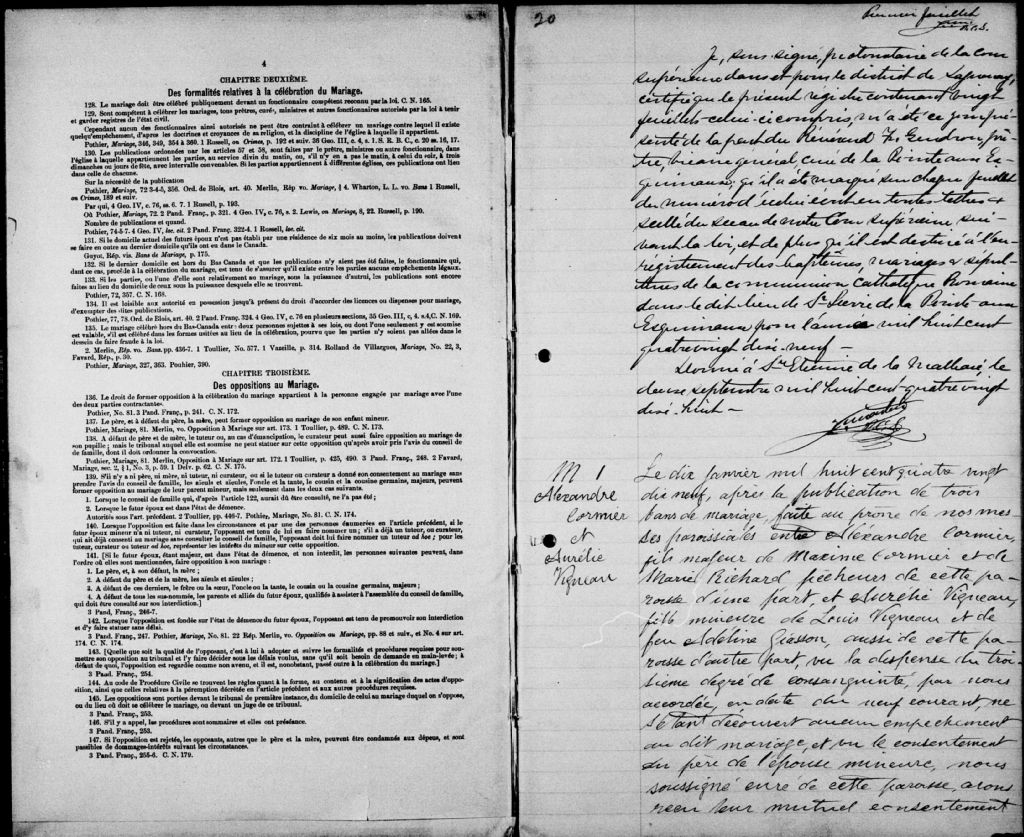 4
CHAPITRE DEUXIÈME.
Des formalités relatives à la célébration du Mariage.
128. Le mariage doit être célébré publiquement devant un fonctionnaire compétent reconnu par la loi. C. N. 165.
129. Sont compétent à célébrer les mariages, tous prêtres, curés, ministres et autres fonctionnaires autorisés par la loi à tenir
et garder registres de l'état civil.
Cependant aucun des fonctionnaires ainsi autorisés ne peut être contraint à célébrer un mariage contre lequel il existe
quelqu'empêchement, d'après les doctrines et croyances de sa religion, et la discipline de l'église à laquelle il appartient.
Pothier, Mariage, 346, 349, 354 & 360. 1 Russell, on Crimes, p. 192 et suiv. 36 Geo. III, c. 4, s. 1. S. R. B. C., c. 20 ss. 16, 17.
130. Les publications ordonnées par les articles 57 et 58, sont faites par le prêtre, ministre ou autre fonctionnaire, dans
l'église à laquelle appartiennent les parties, au service divin du matin, ou, s'il n'y en a pas le matin, à celui du soir, à trois
dimanches ou jours de fête, avec intervalle convenables. Si les parties appartiennent à différentes églises, ces publications ont lieu
dans celle de chacune.
Sur la nécessité de la publication
Pothier, Mariage, 72 3-4-5, 356. Ord. de Blois, art. 40. Merlin, Rép vo. Mariage, § 4. Wharton, L. L. vo. Bans 1 Russell,
on Crimes, 189 et suiv.
Par qui, 4 Geo. IV, c. 76, ss. 6. 7. 1 Russell, p. 193.
Où Pothier, Mariage, 72. 2 Pand. Franç., p. 321. 4 Geo. IV, c. 76, s. 2. Lewis, on Mariage, 8, 22. Russell, p. 190.
Nombre de publications et quand.
Pothier, 74-5-7. 4 Geo. IV, loc. cit. 2 Pand. Franç. 322-4. 1 Russell, loc. cit.
131. Si le domicile actuel des futurs époux n'est pas établi par une résidence de six mois au moins, les publications doivent
se faire en outre au dernier domicile qu'ils ont eu dans le Canada.
Guyot, Rép. vis. Bans de Mariage, p. 175.
132. Si le dernier domicile est hors du Bas Canada et que les publications n'y aient pas été faites, le fonctionnaire qui,
dans ce cas, procède à la célébration du mariage, est tenu de s'assurer qu'il existe entre les parties aucuns empêchements légaux.
133. Si les parties, ou l'une d'elle sont relativement au mariage, sous la puissance d'autrui, les publications sont encore
faites au lieu du domicile de ceux sous la puissance desquels elle se trouvent.
Pothier, 72, 357. C. N. 168.
134. Il est loisible aux autorité en possession jusqu'à présent du droit d'accorder des licences ou dispenses pour mariage,
d'exempter des dites publications.
Pothier, 77, 78. Ord. de Blois, art. 40. 2 Pand. Franç. 324. 4 Geo. IV, c. 76 en plusieurs sections, 35 Geo. III, c. 4. s.4, C. N. 169.
135. Le mariage célébré hors du Bas-Canada entre deux personnes sujettes à ses lois, ou dont l'une seulement y est soumise
est valable, s'il est célébré dans les formes usitées au lieu de la célébration, pourvu que les parties n'y soient pas allées dans le
dessein de faire fraude à la loi.
2. Merlin, Rép. vo. Bans. pp. 436-7. 1 Toullier, No. 577. 1 Vazeille, p. 314. Rolland de Villargues, Mariage, No. 22, 3,
Favard, Rép., p. 30.
Pothier, Mariage, 327, 363. Pouhier, 390.
CHAPITRE TROISIÈME.
Des oppositions au Mariage.
136. Le droit de former opposition à la célébration du mariage appartient à la personne engagée par mariage avec l'une
des deux parties contractantes.
Pothier, No. 81. 3 Pand. Franç., p. 241. C. N. 172.
137. Le père, et à défaut du père, la mère, peut former opposition au mariage de son enfant mineur.
Pothier, Mariage, 81. Merlin, vo. Opposition à Mariage sur art. 173. 1 Toullier, p. 489. C. N. 173.
138. A défaut de père et de mère, le tuteur ou, au cas d'émancipation, le curateur peut aussi faire opposition au mariage de
son pupille; mais le tribunal auquel elle est soumise ne peut statuer sur cette opposition qu'après avoir pris l'avis du conseil de
famille, dont il doit ordonner la convocation.
Pothier, Mariage, 81. Merlin, Opposition à Mariage sur art. 172. 1 Toullier, p. 425, 490. 3 Pand. Franç., p. 248. 2 Favard,
Mariage, sec. 2, § 1, No. 3, p. 59. 1 Delv. p. 62. C. N. 175.
139. S'il n'y a ni père, ni mère, ni tuteur, ni curateur, ou si le tuteur ou curateur a donné son consentement au mariage sans
prendre l'avis du conseil de famille, les aïeuls et aïeules, l'oncle et la tante, le cousin et la cousine germains, majeurs, peuvent
former opposition au mariage de leur parent mineur, mais seulement dans les deux cas suivants.
1. Lorsque le conseil de famille qui, d'après l'article 122, aurait dû être consulté, ne l'a pas été;
2. Lorsque le futur époux est dans l'état de démence.
Autorités sous l'art. précédent. 2 Toullier, pp. 446-7. Pothier, Mariage, No. 81. C. N. 174.
140. Lorsque l'opposition est faite dans les circonstances et par une des personnes énumérées en l'article précédent, si le
futur époux mineur n'a ni tuteur, ni curateur, l'opposant est tenu de lui en faire nommer un; s'il a déjà un tuteur, ou curateur,
qui ait déjà consenti au mariage sans consulter le conseil de famille, l'opposant doit lui faire nommer un tuteur ad hoc; pour les
tuteur, curateur ou tuteur ad hoc, représenter les intérêts du mineur sur cette opposition.
141. [Si le futur époux, étant majeur, est dans l'état de démence, et non interdit, les personnes suivantes peuvent, dans
l'ordre où elles sont mentionnées, faire opposition à son mariage:
1. Le père, et, à son défaut, la mère;
2. A défaut du père et de la mère, les aïeuls et aïeules;
3. A défaut de ces derniers, le frère ou la sœur, l'oncle ou la tante, le cousin ou la cousine germains, majeurs;
4. A défaut de tous les sus-nommés, les parents et alliés du futur époux, qualifiés à assister à l'assemblée du conseil de famille,
qui doit être consulté sur son interdiction.]
3 Pand. Franç., 246-7.
142. Lorsque l'opposition est fondée sur l'état de démence du futur époux, l'opposant est tenu de promouvoir son interdiction
et d'y faire statuer sans délai.
3 Pand. Franç., 247. Pothier, Mariage, No. 81. 22 Rép. Merlin, vo. Opposition au Mariage, pp. 88 et suiv., et No. 4 sur art.
174. C. N. 174.
143. [Quelle que soit la qualité de l'opposant, c'est à lui à adopter et suivre les formalités et procédures requises pour sou-
mettre son opposition au tribunal et l'y faire décider sous les délais voulus, sans qu'il soit besoin de demande en main-levée; à
défaut de quoi, l'opposition est regardée comme non avenu, et il est, nonobstant, passé outre à la célébration du mariage.]
3 Pand. Franç., 254.
144. Au code de Procédure Civile se trouvent les règles quant à la forme, au contenu et à la signification des actes d'oppo-
sition, ainsi que celles relatives à la péremption décrétée en l'article précédent et aux autres procédures requises.
145. Les oppositions sont portées devant le tribunal de première instance, du domicile de celui au mariage duquel on s'oppose,
ou du lieu où doit se célébrer le mariage, ou devant un juge de ce tribunal.
3 Pand. Franç., 253.
146. S'il y a appel, les procédure sont sommaires et elles ont préséance.
3 Pand. Franç., 253.
147. Si l'opposition est rejetée, les opposants, autres que le père et la mère, peuvent être condamnés aux dépens, et sont
passibles de dommages-intérêts suivant les circonstances.
3 Pand. Franç., 255-6. C. N. 179.
20
Premier feuillet
P.C.S.
Je, soussigné, protonotaire de la cour
supérieure dans et pour le district de Saguenay,
certifie que le présent registre contenant vingt
feuillets celui-ci compris, m'a été ce jour pré-
senté de la part du Révérend F. Gendron prê-
tre, vicaire general, curé de la Pointe aux Es-
quimaux; qu'il a été marqué sur chaque feuillet
du numéro d'icelui écrit en toutes lettres &
scellé du sceau de notre Cour supérieure, sui-
vant la loi, et de plus qu'il est destiné à l'en-
régistrement des baptêmes, mariages & sépul-
tures de la communion catholique Romaine
dans le dit lieu de St Pierre de la Pointe aux
Esquimaux pour l'année mil huit cent
quatre vingt dix-neuf -
Donné à St Etienne de la Malbaie, le
douze septembre mil huit cent quatre vingt
dix-huit -
M 1
Alexandre
Cormier
et
Aurélie
Vigneau
Le dix Janvier mil huit cent quatre vingt
dix neuf, après la publication de trois
bans de mariage, faite au prone de nos mes
ses paroissiales entre Alexandre Cormier,
fils majeur de Maxime Cormier et de
Marie Richard pêcheurs de cette pa-
roisse d'une part et Aurélie Vigneau,
fille mineure de Louis Vigneau et de
feu Adeline Giasson aussi de cette pa-
roisse d'autre part, vu la dispense du troi-
sième degré de consanguinité, par nous
accordée, en date du neuf courant, ne
s'étant découvert aucun empêchement
au dit mariage, et vu le consentement
du père de l'épouse mineure, nous
soussigné curé de cette paroisse, avons
reçu leur mutuel consentement